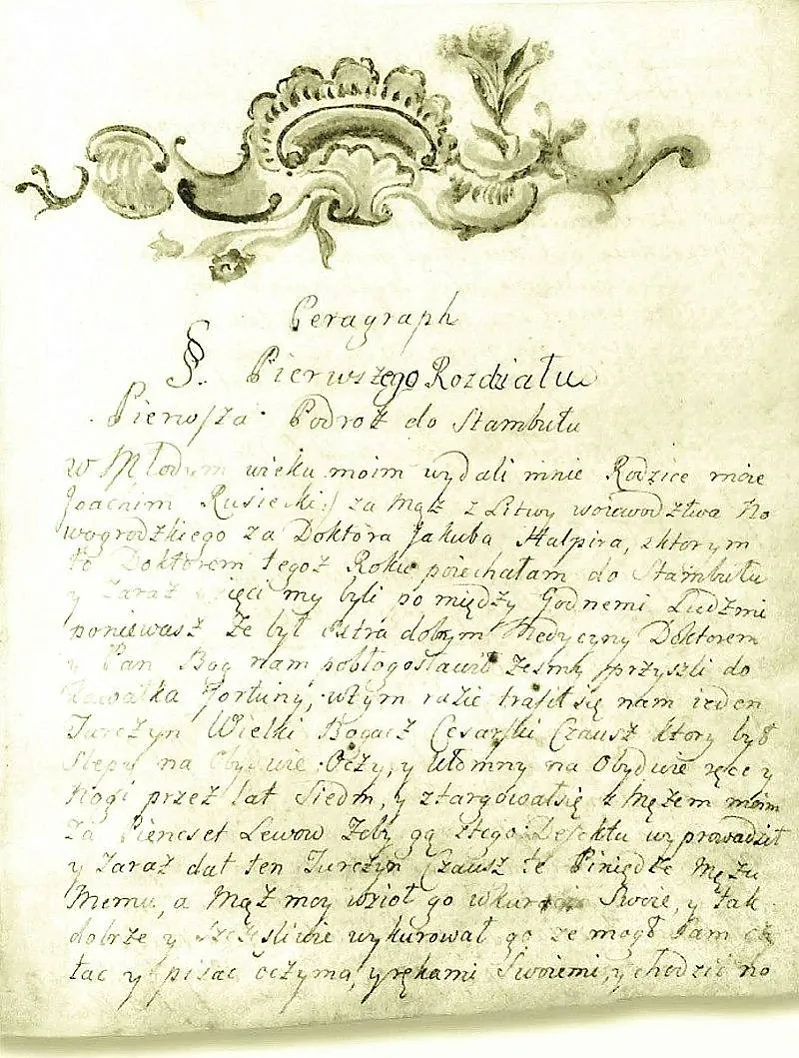 Peragraph
§. Pierwszego Rozdziału
Pierwsza Podroż do Stambułu
W Młodym wieku moim wydali mnie Rodzice moie
Joachim Rusiecki:/ za Mąż z Litwy woiewodztwa No
wogrodzkiego za Doktora Jakuba Halpira, zktorym
to Doktorem tegoż Roku poiechałam do Stambułu
y Zaraz my byli pomiędzy Godnemi Ludźmi
poniewasz Że był extra dobrym Medycyny Doktorem
y Pan Bog nam pobłogosławił Żesmy przyszli do
Kawałka Fortuny, wtym razie trafił się nam ieden
Turczyn Wielki Bogacz Cesarski Czausz ktory był
Slepy na Obydwie Oczy, y Ułomny na Obydwie ręce y
Nogi przez lat Siedm, y ztargowałsię z Mężem moim
Za Pięncset Lewow Żeby gą ztego Defektu wyprowadził
y Zaraz dał ten Turczyn Czausz te Piniędze Mężu
Memu, a Mąż moy wzioł go w Swoie, y tak
dobrze y Szczęsliwie wykurował go ze mogł Sam cz
tać y pisać oczyma, y rękami Swoiemi, y chodzić no